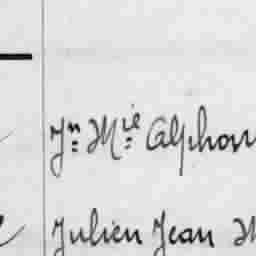 Jn Mie Alphon
Julien Jean M